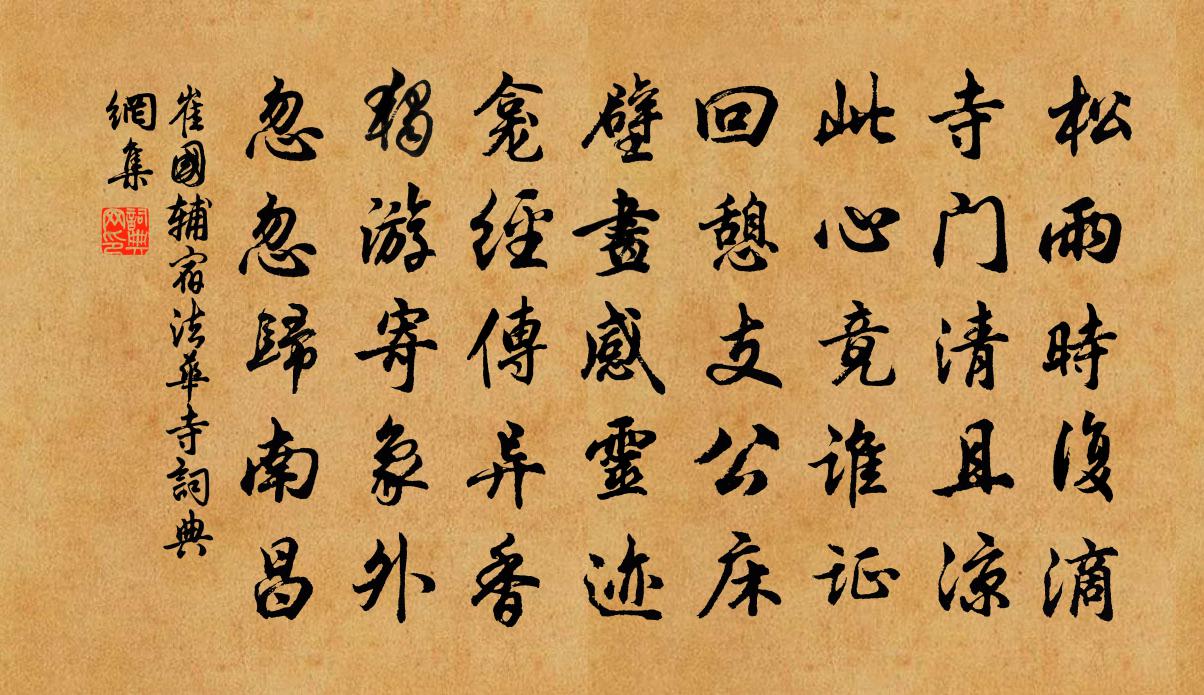 松雨時復滴
寺门清且凉
此心竟谁证
回憩支公床
壁畫感靈迹
龛經傳异香
獨游寄象外
忽忽歸南昌
崔國辅宿法華寺詞典
網集
詞典网印